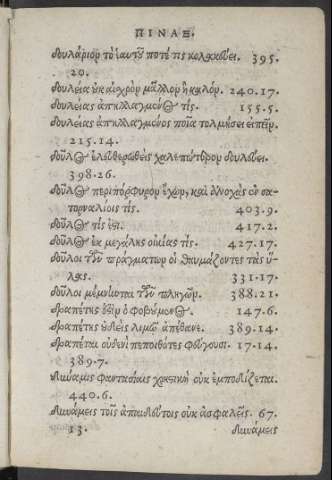 ΠΙΝΑΞ.
δουλάριον τὸ ἑαυτοῦ ποτέ τις κολακεύει. 395.
20.
δουλεία οὐκ αἰσχρὸν μᾶλλον ἢ καλόν. 240.17.
δουλείας ἀπηλλαγμένος τίς. 155.5.
δουλείας ἀπηλλαγμένος ποῖα τολμήσει εἰπεῖν.
215.14.
δοῦλος ἐλευθερωθεὶς χαλεπώτερον δουλεύει.
398.26.
δοῦλος περιπόρφυρον ἔχων, καὶ ἀνοχὰς ἐν σα-
τορναλίοις τίς. 403.9.
δοῦλος τίς ἐστι. 417.2.
δοῦλος ἐκ μεγάλης οἰκίας τίς. 427.17.
δοῦλοι τῶν πραγμάτων οἱ θαυμάζοντες τὰς ὕ-
λας. 331.17.
δοῦλοι μέμνηνται τῶν πληγῶν. 388.21.
δραπέτης ἐστὶν ὁ φοβούμενος. 147.6.
δραπέτης οὐδεὶς λιμῷ ἀπέθανε. 389.14.
δραπέται οὐδενὶ πεποιθότες φεύγουσι. 17.14.
389.7.
δύναμις φαντασίαις χρηστικὴ οὐκ ἐμποδίζεται.
440.6.
δυνάμεις τοῖς ἀπαιδεύτοις οὐκ ἀσφαλεῖς. 67.
13. δυνάμεις